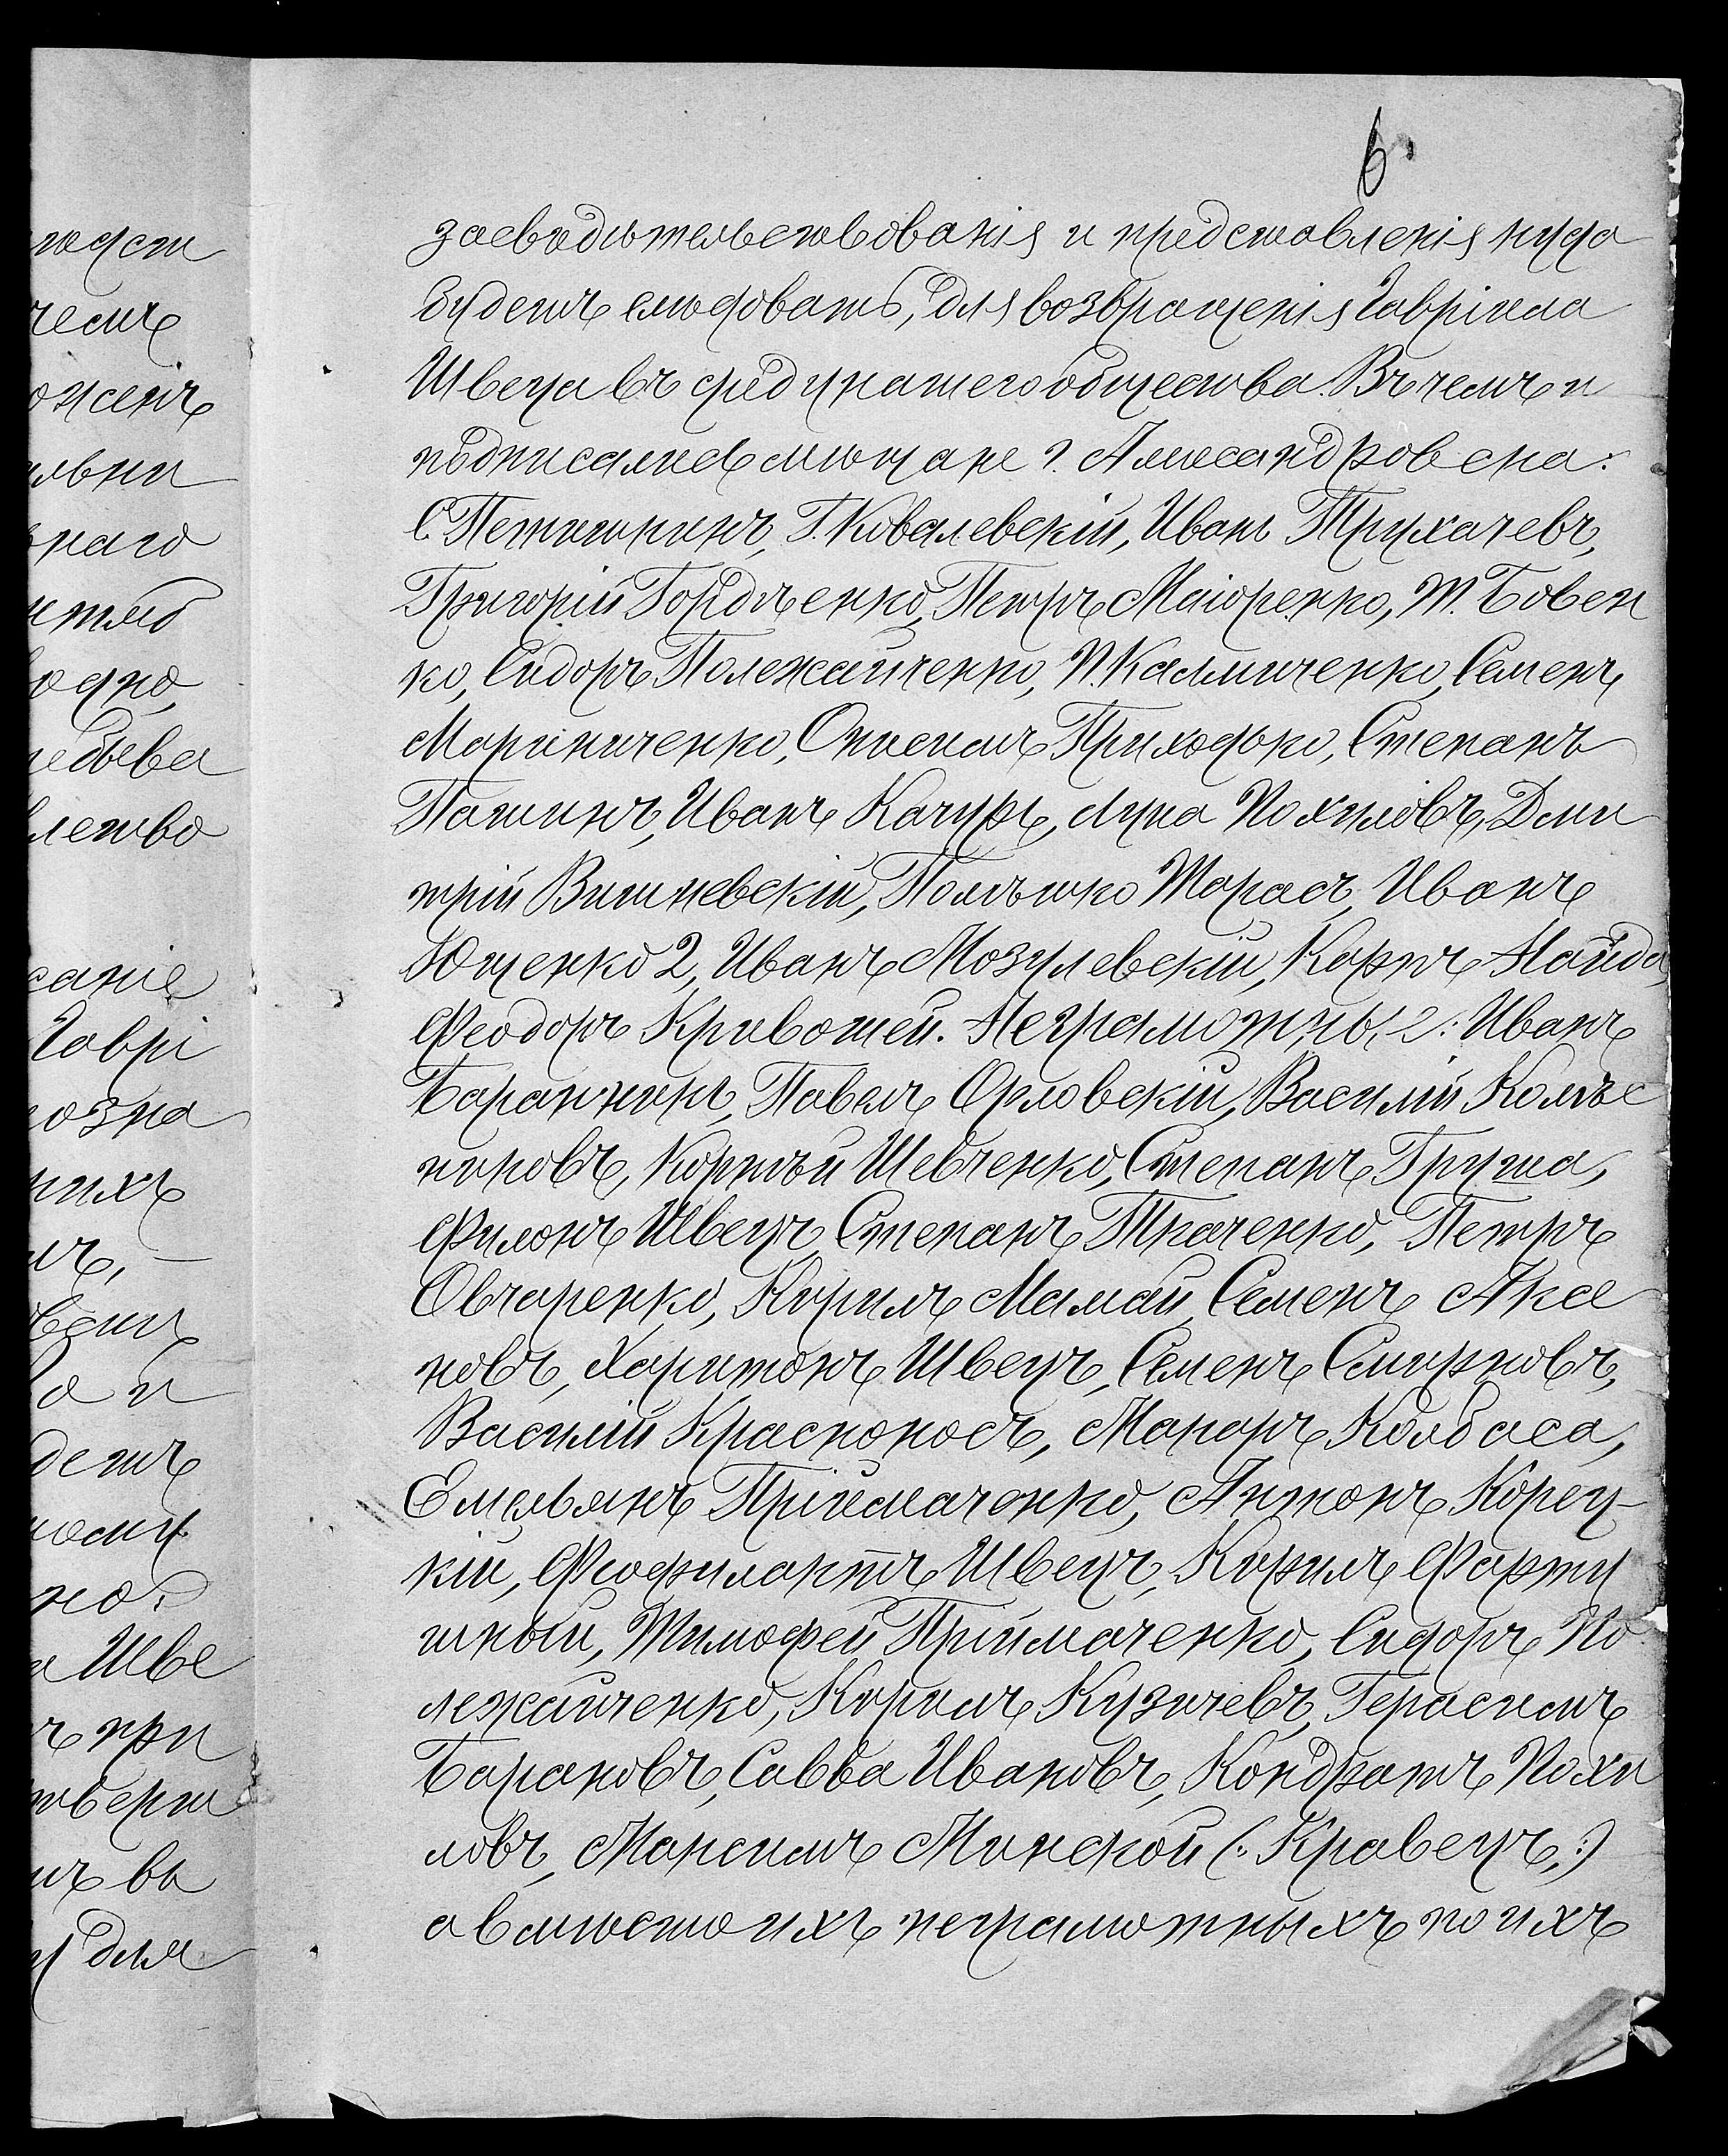 6
засвидѣтельствованія и представленія куда
будетъ слѣдовать, для возвращенія Гавріила
Швеца въ среду нашего общества. Въ чемъ и
подписались мѣщане г. Александровска:
С. Петишкинъ, Г. Ковалевскій, Иванъ Трухачевъ,
Григорій Гордѣенко, Петръ Маіоренко, Т. Бовен
ко, Сидоръ Полежайченко, И. Калмиченко, Семенъ
Мариниченко, Онисимъ Приходько, Степанъ
Пашинъ, Иванъ Качуръ, Лука Похиловъ, Дми
трій Вишневскій, Полѣшко Тарасъ, Иванъ
Ющенко 2, Иванъ Мозулевскій, Карпъ Найда,
Феодоръ Кривошей. Неграмотные: Иванъ
Баранникъ, Павелъ Орловскій, Василій Колѣс
никовъ, Корнѣй Шевченко, Степанъ Груша,
Филонъ Швецъ, Степанъ Ткаченко, Петръ
Овчаренко, Кирилъ Мамай, Семенъ Аксе
новъ, Харитонъ Швецъ, Семенъ Смирновъ,
Василій Красноносъ, Макаръ Колбаса,
Емельянъ Пріймаченко, Антонъ Корец-
кій, Феофилактъ Швецъ, Кирилъ Фарту
шный, Тимофей Пріймаченко, Сидоръ По
лежайченко, Кирилъ Кузичевъ, Герасимъ
Барановъ, Савва Ивановъ, Кондратъ Похи
ловъ, Максимъ Минской (: Кравецъ :)
а вмѣсто ихъ неграмотныхъ по ихъ